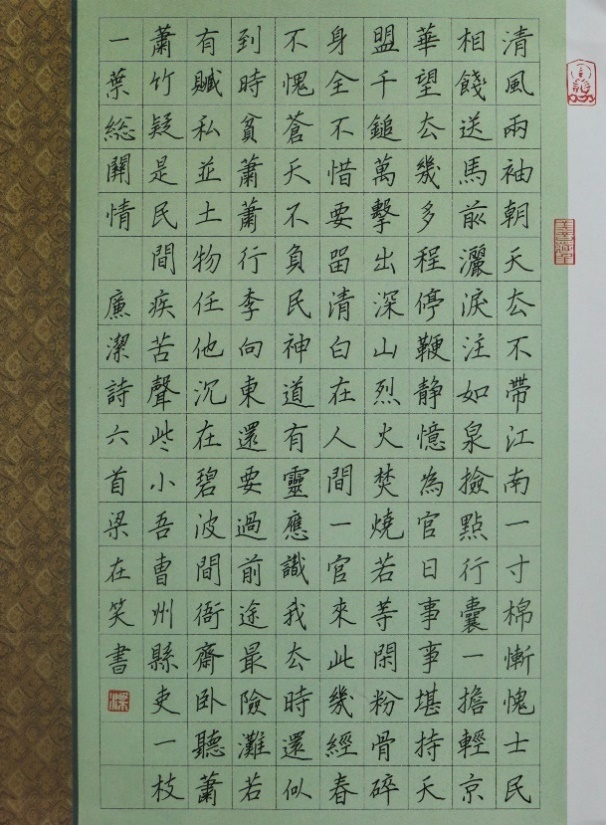 清風兩袖朝天去不帶江南一寸棉慚愧士民
相餞送馬前灑淚注如泉撿點行囊一擔輕京
華望去幾多程停鞭静憶為官日事事堪持天
盟千鎚萬擊出深山烈火焚燒若等閑粉骨碎
身全不惜要留清白在人間一官來此幾經春
不愧蒼天不負民神道有靈應識我去時還似
到時貧蕭蕭行李向東還要過前途最險灘若
有贓私並土物任他沉在碧波間衙齋卧聽蕭
蕭竹疑是民間疾苦聲些小吾曹州縣吏一枝
一葉總關情 廉潔詩六首梁在笑書